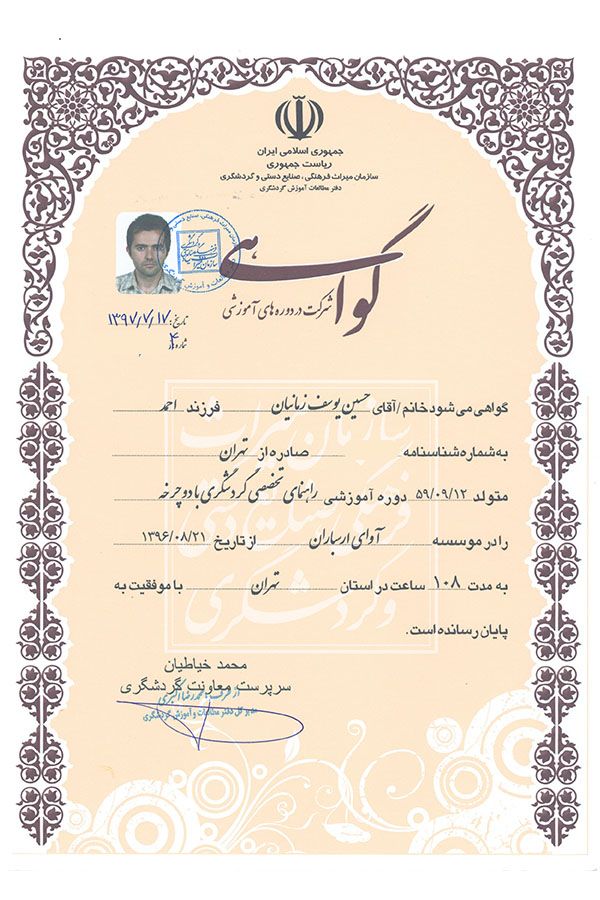 جمهوری اسلامی ایران
ریاست جمهوری
سازمان میراث فرهنگی، صنایع دستی و گردشگری
دفتر مطالعات آموزش گردشگری
گواهی
شرکت در دوره های آموزشی
تاریخ: ۱۳۹۷/۷/۱۷
گواهی می شود خانم/آقای حسین یوسف زمانیان فرزند احمد
به شماره شناسنامه صادره از تهران
متولد ۵۹/۰۹/۱۲ دوره آموزشی راهنمای تخصصی گردشگری با دوچرخه
را در موسسه آوای ارسباران از تاریخ ۱۳۹۶/۰۸/۲۱
به مدت ۱۰۸ ساعت در استان تهران با موفقیت به
پایان رسانده است.
محمد خیاطیان
سرپرست معاونت گردشگری
از طرف محمدرضا اکبری
مدیر کل دفتر مطالعات و آموزش گردشگری
سازمان میراث
فرهنگی صنایع دستی
و گردشگری